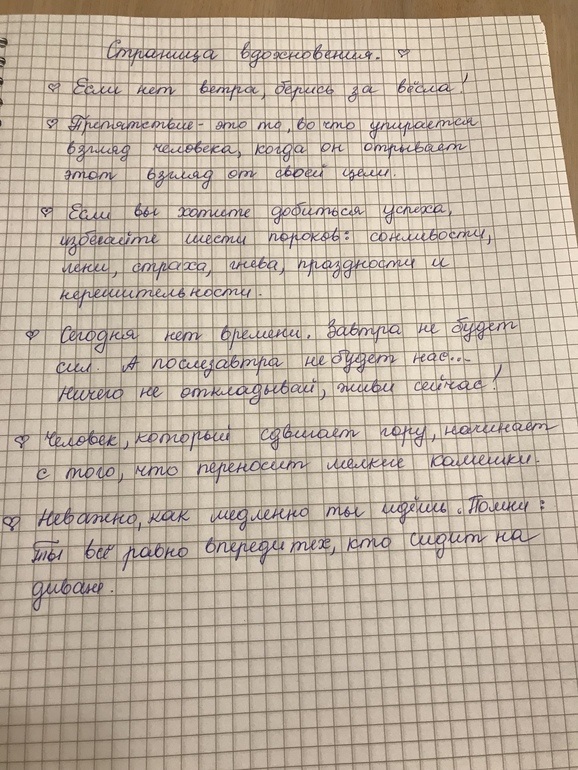 Страница вдохновения.
Если нет ветра, берись за вёсла!
Препятствие - это то, во что упирается
взгляд человека, когда он отрывает
этот взгляд от своей цели.
Если вы хотите добиться успеха,
избегайте шести пороков: сонливости,
лени, страха, гнева, праздности и
нерешительности.
Сегодня нет времени. Завтра не будет
сил. А послезавтра не будет нас...
Ничего не откладывай, живи сейчас!
Человек, который сдвигает гору, начинает
с того, что переносит мелкие камешки.
Неважно, как медленно ты идёшь. Помни:
Ты всё равно впереди тех, кто сидит на
диване.